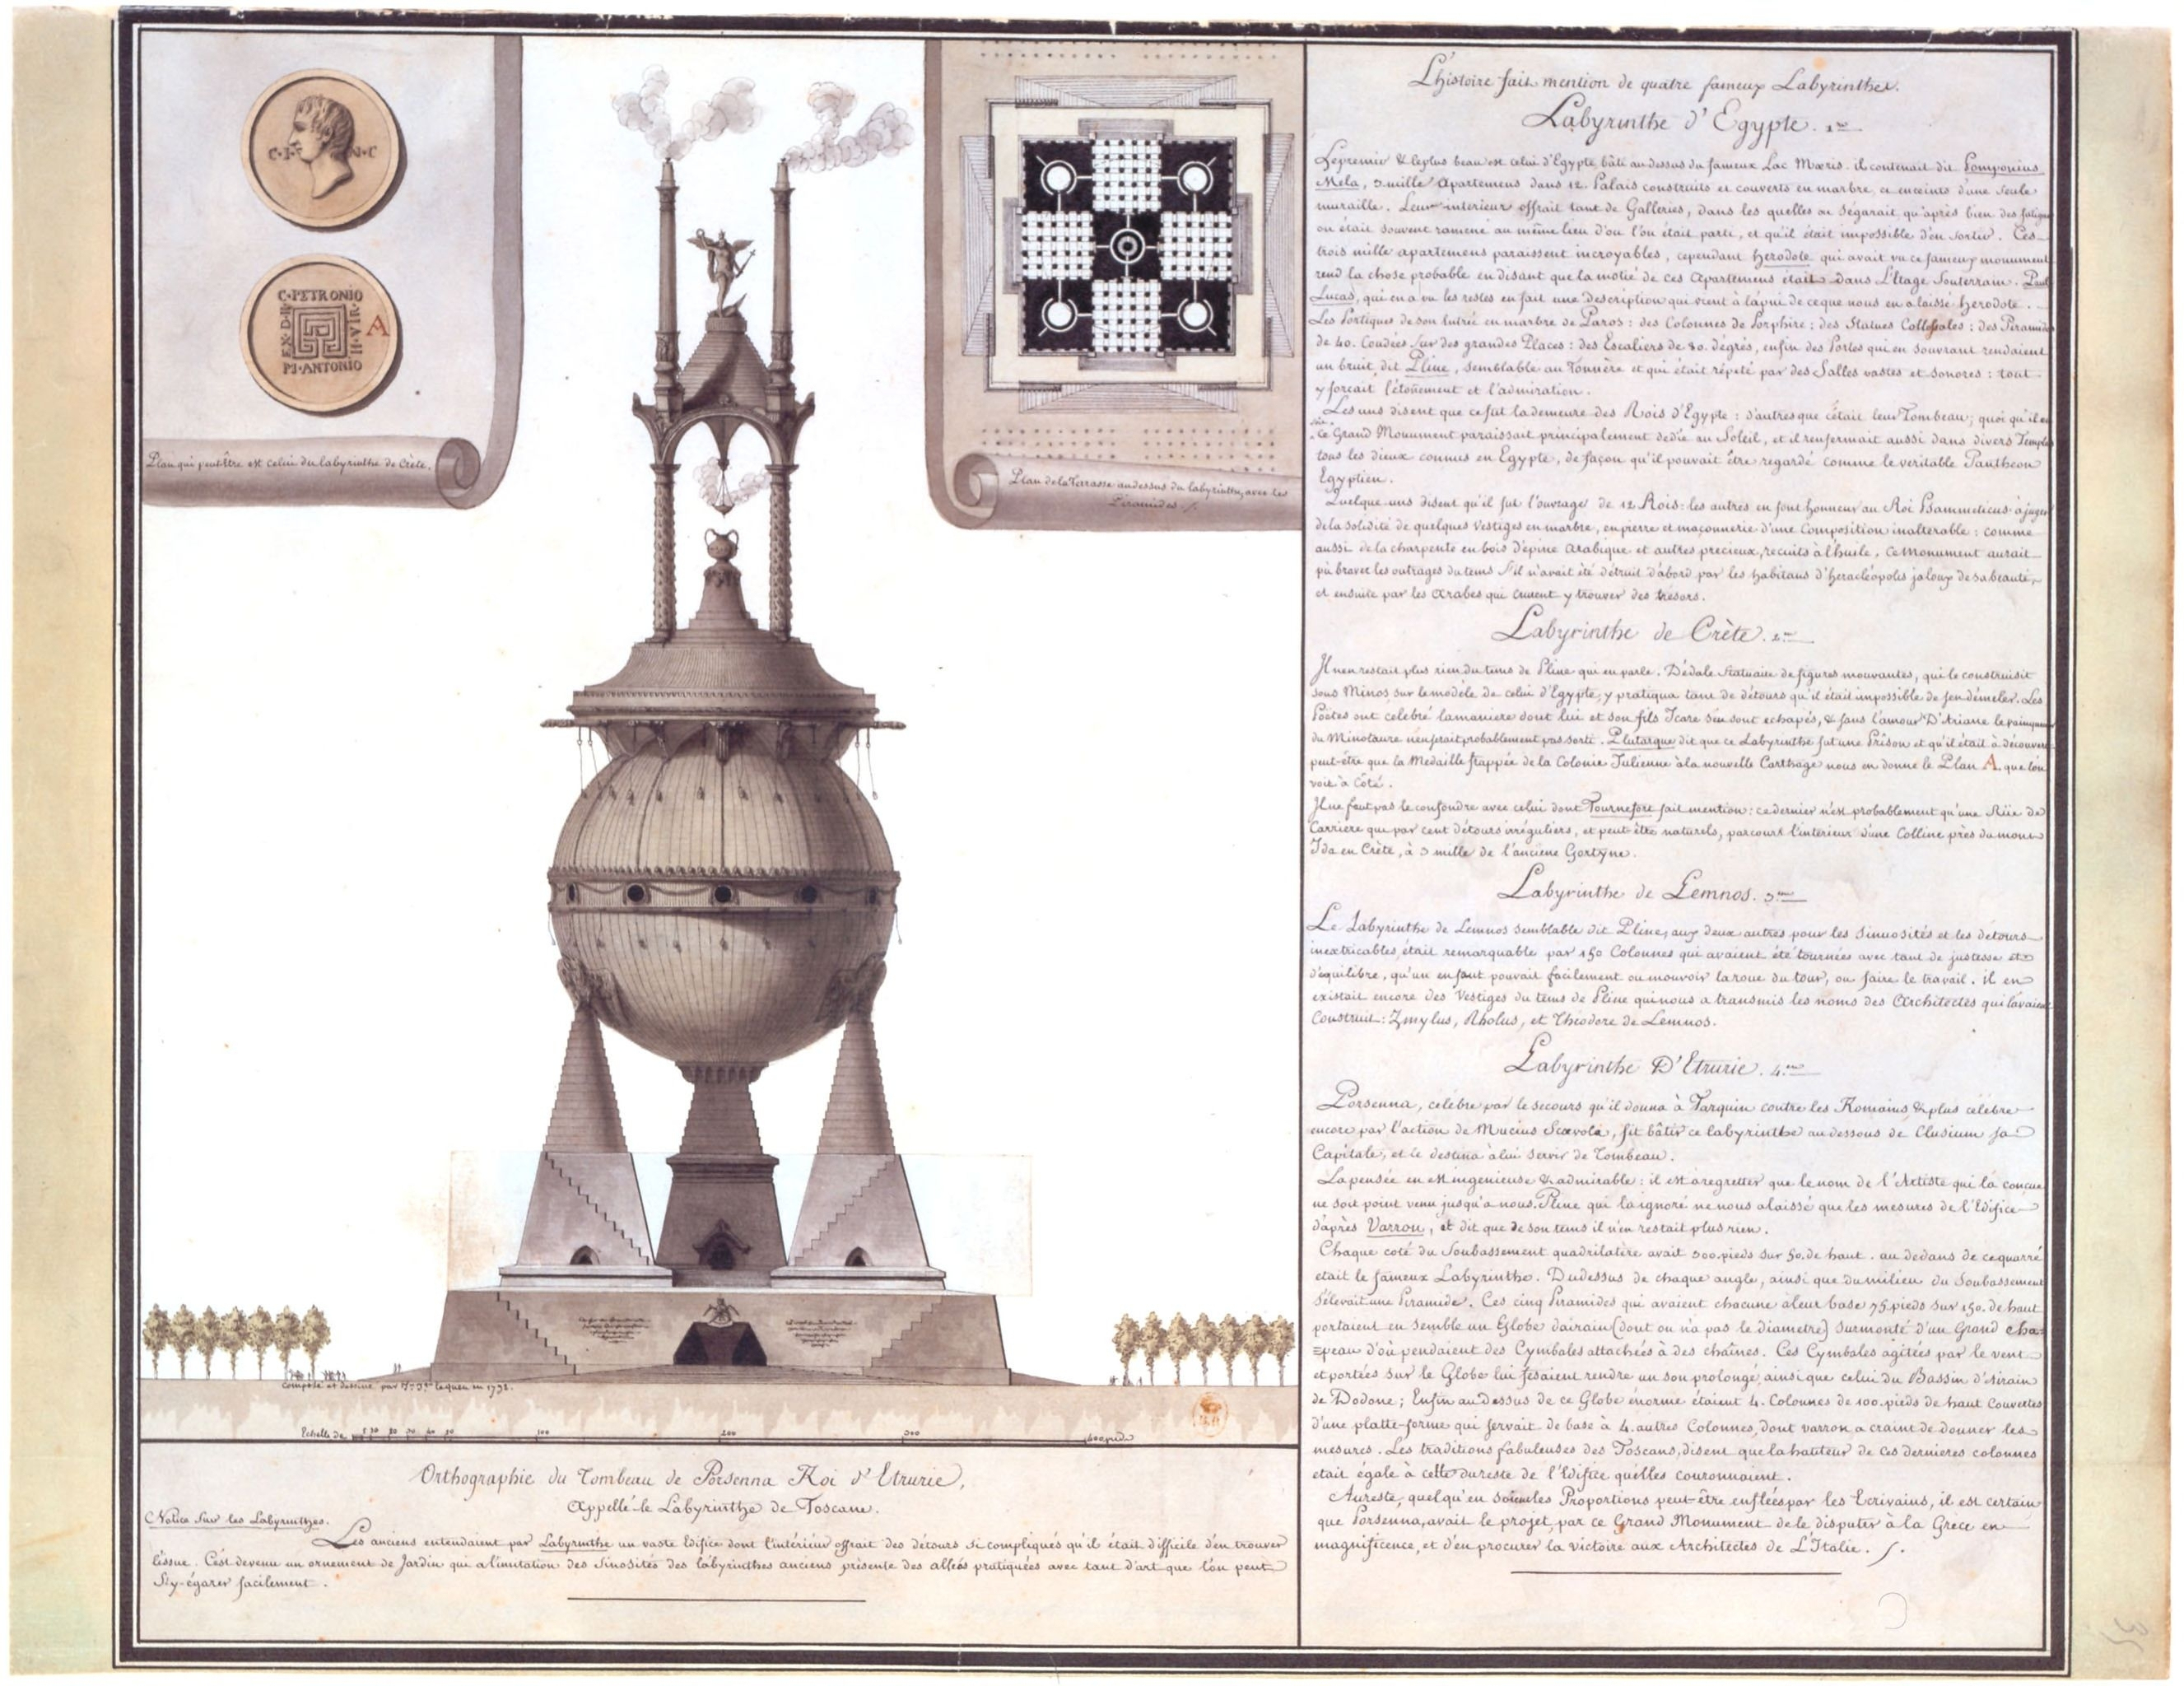 C·I· N·C
C·PETRONIO
EX·D·D
II·VIR·
A
PI·ANTONIO
Plan qui peut être est celui du labyrinthe de Crète.
Plan de la Terrasse au dessus du labyrinthe, avec les
Piramides /.
composé et dessiné par
Echelle de 5 10 20 30 40 50 100 200 300 400 pieds
Orthographie du Tombeau de Porsenna Roi d'Etrurie,
Appellé le Labyrinthe de Toscane.
Notice Sur les Labyrinthes.
Les anciens entendaient par Labyrinthe un vaste Edifice dont l'intérieur offrait des détours si compliqués qu'il était difficile d'en trouver
l'issue. C'est devenu un ornement de Jardin qui a l'imitation des Sinosités des labyrinthes anciens présente des allées pratiquées avec tant d'art que l'on peut
S'y égarer facilement.
L'histoire fait mention de quatre fameux Labyrinthes.
Labyrinthe d'Egypte. 1er
Le premier & le plus beau est celui d'Egypte, bâti au dessus du fameux Lac Mœris. il contenait dit Pomponius
Mela, 3 mille Apartemens dans 12 Palais construits et couverts en marbre, et enceints d'une seule
muraille. Leur intérieur offrait tant de Galleries, dans les quelles on s'égarait qu'après bien des fatigues
on était souvent ramené au même lieu d'ou l'on était parti, et qu'il était impossible d'en sortir. Ces
trois mille apartemens paraissent incroyables, cependant herodote qui avait vu ce fameux monument
rend la chose probable en disant que la motié de ces Apartemens était dans L'Etage Souterrain. Paul
Lucas, qui en a vu les restes en fait une description qui vient à l'apui de ce que nous en a laissé herodote.
Les Portiques de son Entrée en marbre de Paros: des Colonnes de Porphire; des Statues Collossales: des Piramides
de 40. Coudées Sur des grandes Places: des Escaliers de 80. dégrés, enfin des Portes qui en souvrant rendaient
un bruit, dit Pline, semblable au Tonnère et qui était répété par des Salles vastes et sonores: tout
y forçait l'étonement et l'admiration.
Les uns disent que ce fut la demeure des Rois d'Egypte: d'autres que c'était leur Tombeau; quoi qu'il en
soit, ce Grand Monument paraissait principalement dedié au Soleil, et il renfermait aussi dans divers Temples
tous les dieux connus en Egypte, de façon qu'il pouvait être regardé comme le veritable Pantheon
Egyptien.
Quelque uns disent qu'il fut l'ouvrage de 12 Rois: les autres en font honneur au Roi Psammeticus: à juger
de la solidité de quelques vestiges en marbre, en pierre et maçonnerie d'une Composition inaltérable: comme
aussi de la charpente en bois d'épine Arabique et autres precieux, recuits à l'huile, ce Monument aurait
pû braver les outrages du tems S'il n'avait été détruit d'abord par les habitans d'heracléopoles jaloux de sa beauté,
et ensuite par les Arabes qui crurent y trouver des trésors.
Labyrinthe de Crète. 2me
Il n'en restait plus rien du tems de Pline qui en parle. Dédale Statuaire de figures mouvantes, qui le construisit
sous Minos, sur le modèle de celui d'Egypte, y pratiqua tant de détours qu'il était impossible de s'en démeler. Les
Poètes ont celébré la maniere dont lui et son fils Icare s'en sont echapés, & sans l'amour D'Ariane le vainqueur
du Minotaure n'en serait probablement pas sorti. Plutarque dit que ce Labyrinthe fut une Prison et qu'il était à découvert
peut-être que la Medaille frappée de la Colonie Julienne à la nouvelle Carthage nous en donne le Plan A que l'on
voit à Côté.
Il ne faut pas le confondre avec celui dont Tournefort fait mention: ce dernier n'est probablement qu'une Rüe de
Carriere que par cent détours irréguliers, et peut-être naturels, parcours l'interieur d'une Colline près du mont
Ida en Crète, à 3 mille de l'anciene Gortyne.
Labyrinthe de Lemnos. 3eme
Le Labyrinthe de Lemnos semblable dit Pline, aux deux autres pour les Sinuosités et les détours
inextricables, était remarquable par 150 Colonnes qui avaient été tournées avec tant de justesse et
d'équilibre, qu'un enfant pouvait facilement ou mouvoir la roue du tour, ou faire le travail. il en
existait encore des Vestiges du tems de Pline qui nous a transmis les noms des Architectes qui l'avaient
Construit: Zmylus, Rholus, et Théodore de Lemnos.
Labyrinthe D'Etrurie. 4eme
Porsenna, célèbre par le secours qu'il donna à Tarquin contre les Romains, & plus célèbre
encore par l'action de Mucius Scævola, fit bâtir ce labyrinthe au dessous de Clusium sa
Capitale, et le destina à lui servir de Tombeau.
La pensée en est ingenieuse & admirable: il est à regretter que le nom de l'Artiste qui l'a conçue
ne soit point venu jusqu'a nous. Pline qui l'a ignoré ne nous a laissé que les mesures de l'Edifice
d'après Varron, et dit que de son tems il n'en restait plus rien.
Chaque coté du Soubassement quadrilatère avait 300. pieds sur 50. de haut. au dedans de ce quarré
etait le fameux Labyrinthe. Du dessus de chaque angle, ainsi que du milieu du Soubassement
s'élevait une Piramide. Ces cinq Piramides qui avaient chacune à leur base 75 pieds sur 150. de haut
portaient en semble un Globe d'airain (dont on n'a pas le diametre) surmonté d'un Grand cha=
=peau d'où pendaient des Cymbales attachées à des chaînes. Ces Cymbales agitées par le vent
et portées sur le Globe lui fesaient rendre un son prolongé, ainsi que celui du Bassin d'airain
de Dodone; Enfin au dessus de ce Globe énorme étaient 4. Colonnes de 100. pieds de haut Couvertes
d'une platte-forme qui servait de base à 4. autres Colonnes, dont varron a craint de donner les
mesures. Les traditions fabuleuses des Toscans, disent que la hauteur de ces dernieres colonnes
etait égale à celle du reste de l'Edifice qu'elles couronnaient.
Aureste, quelqu'en soient les Proportions peut-être enflées par les Ecrivains, il est certain
que Porsenna, avait le projet, par ce Grand Monument de le disputer à la Grèce en
magnificence, et d'en procurer la victoire aux Architectes de L'Italie. /.